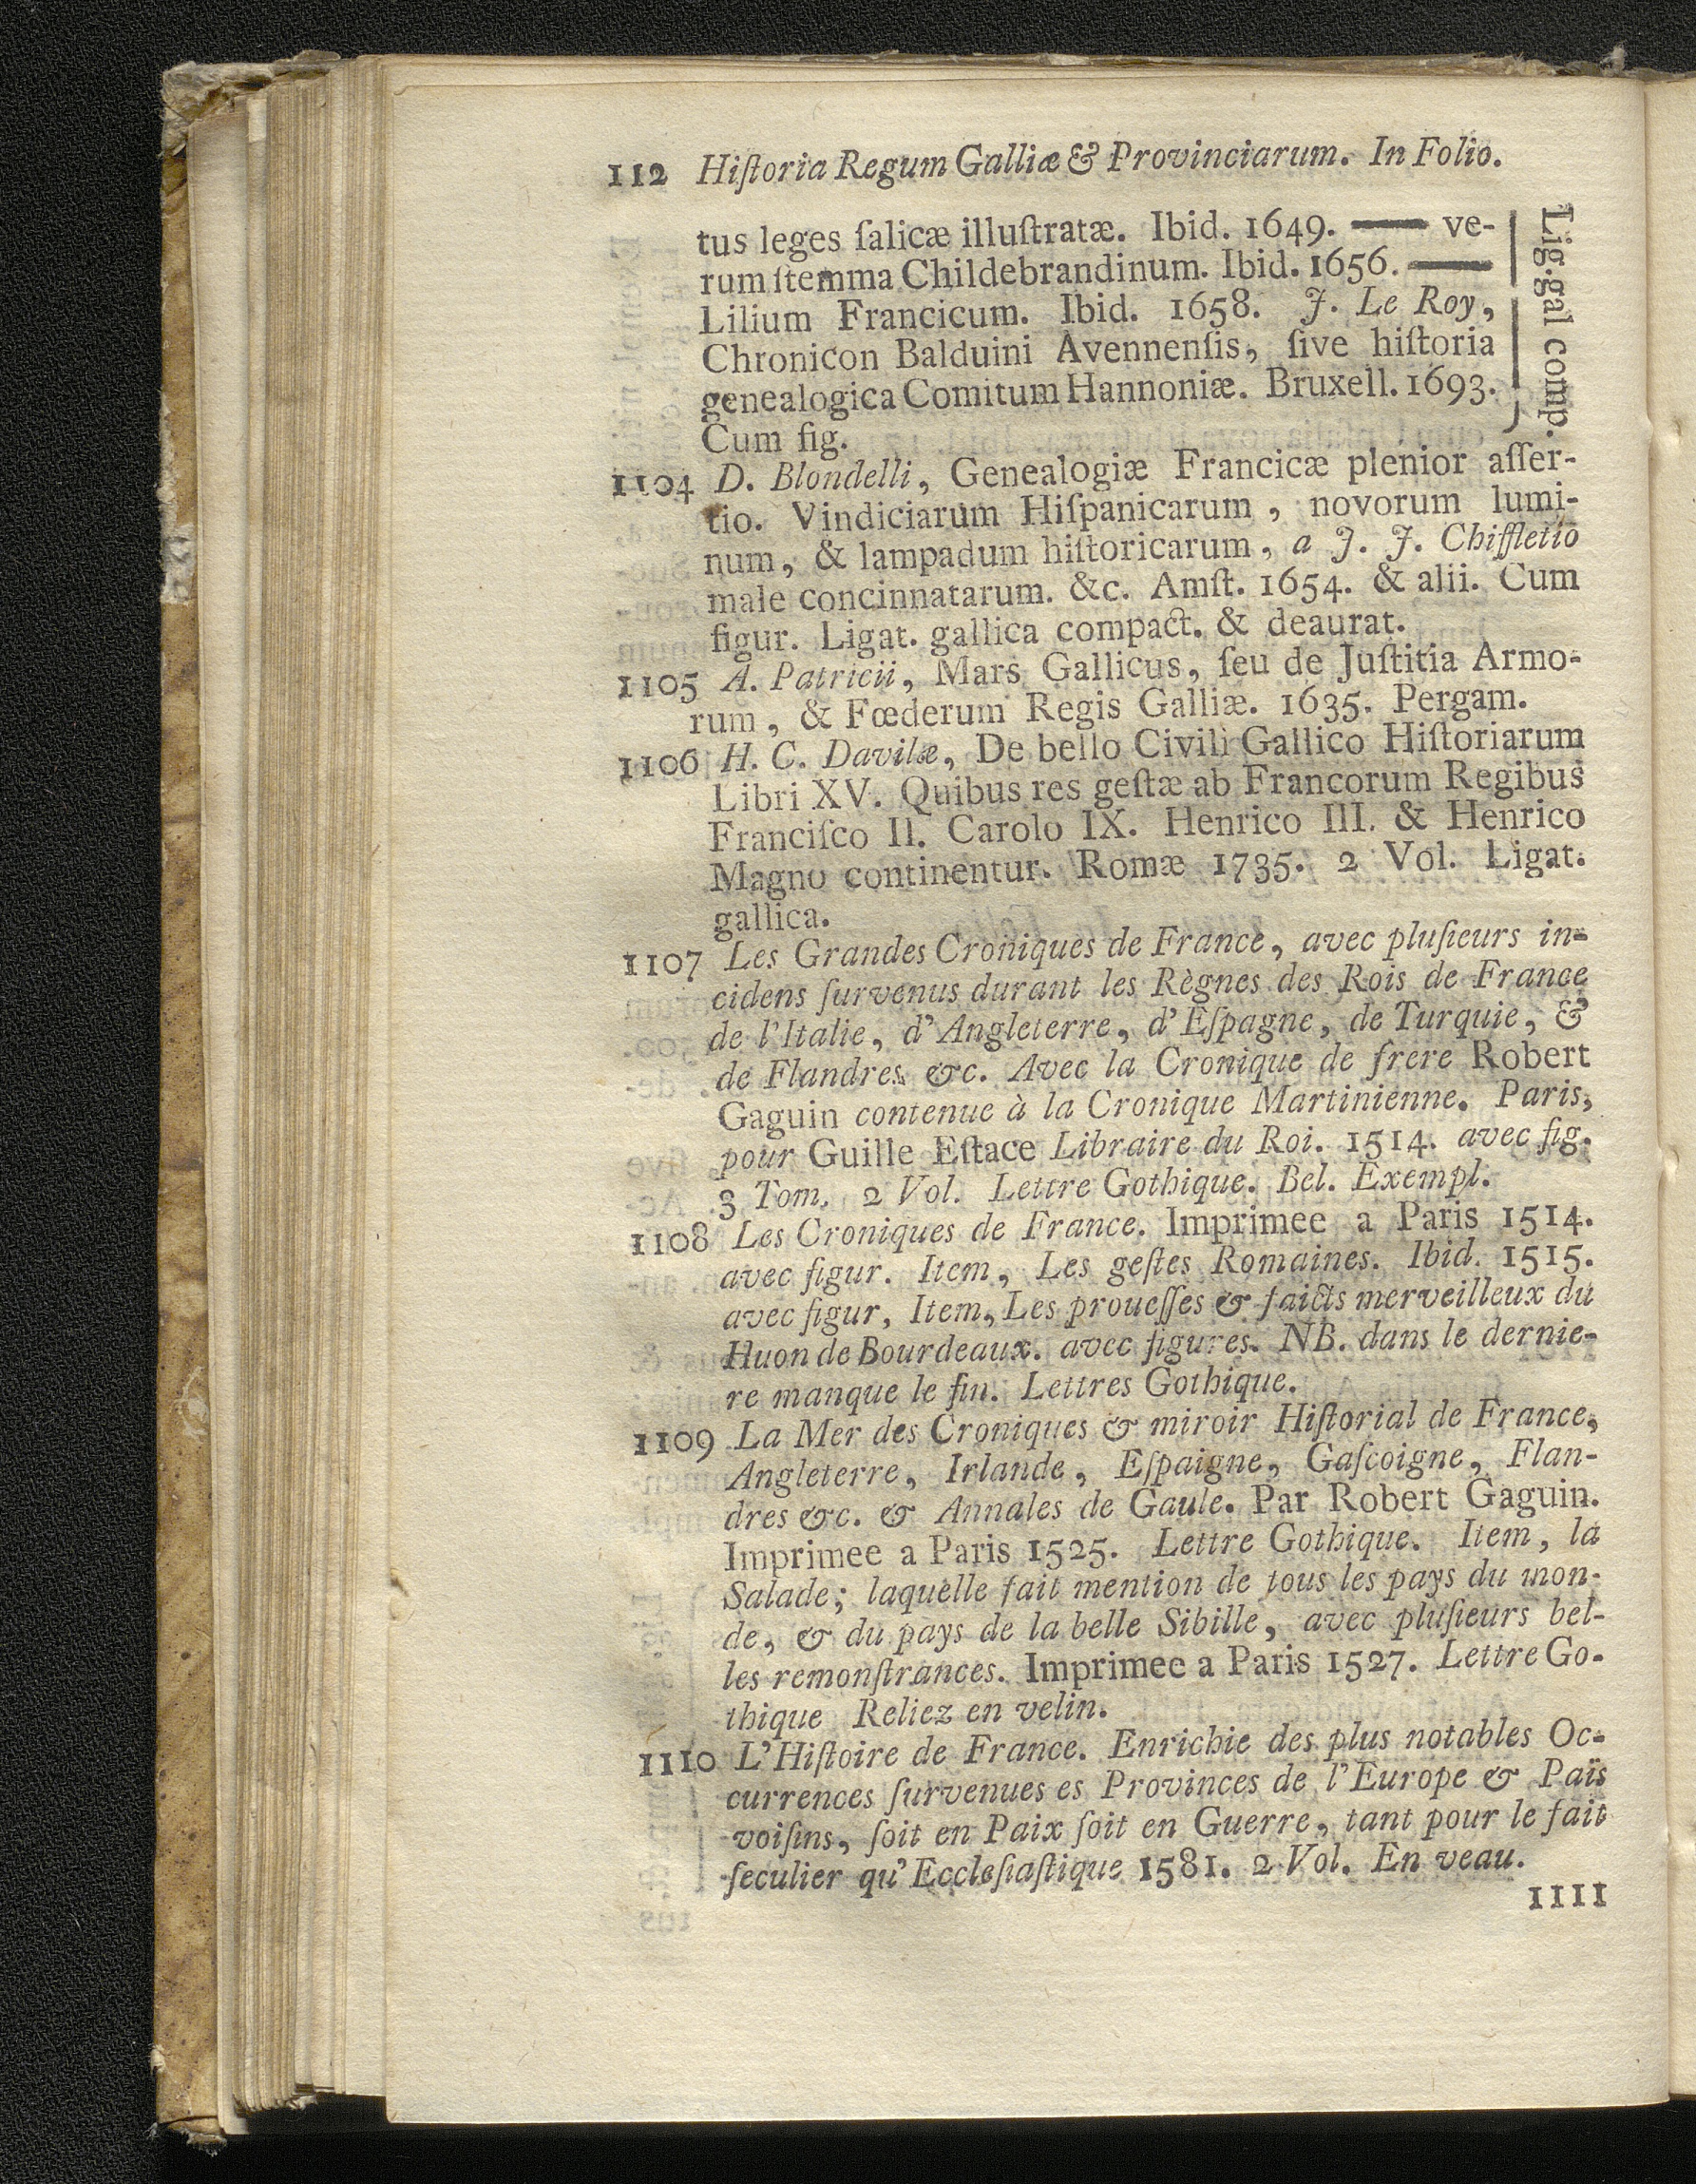 112 Hiſtoria Regum Galliæ & Provinciarum. In Folio.
tus leges ſalicæ illuſtratæ. Ibid. 1649. —— ve-
rum ſtemma Childebrandinum. Ibid. 1656. ——
Lilium Francicum. Ibid. 1658. J. Le Roy,
Chronicon Balduini Avennenſis, ſive hiſtoria
genealogica Comitum Hannoniæ. Bruxell. 1693.
Cum fig.
Lig. gal comp.
1104 D. Blondelli, Genealogiæ Francicæ plenior aſſer-
tio. Vindiciarum Hiſpanicarum, novorum lumi-
num, & lampadum hiſtoricarum, a J. J. Chiffletio
male concinnatarum. &c. Amſt. 1654. & alii. Cum
figur. Ligat. gallica compact. & deaurat.
1105 A. Patricii, Mars Gallicus, ſeu de Juſtitia Armo-
rum, & Fœderum Regis Galliæ. 1635. Pergam.
1106 H. C. Davilæ, De bello Civili Gallico Hiſtoriarum
Libri XV. Quibus res geſtæ ab Francorum Regibus
Franciſco II. Carolo IX. Henrico III. & Henrico
Magno continentur. Romæ 1735. 2 Vol. Ligat.
gallica.
1107 Les Grandes Croniques de France, avec pluſieurs in-
cidens ſurvenus durant les Règnes des Rois de France
de l'Italie, d'Angleterre, d'Eſpagne, de Turquie, &
de Flandres &c. Avec la Cronique de frere Robert
Gaguin contenue à la Cronique Martinienne. Paris,
pour Guille Eſtace Libraire du Roi. 1514. avec fig.
3 Tom. 2 Vol. Lettre Gothique. Bel. Exempl.
1108 Les Croniques de France. Imprimee a Paris 1514.
avec figur. Item, Les geſtes Romaines. Ibid. 1515.
avec figur, Item, Les proueſſes & faicts merveilleux du
Huon de Bourdeaux. avec figures. NB. dans le dernie-
re manque le fin. Lettres Gothique.
1109 La Mer des Croniques & miroir Hiſtorial de France,
Angleterre, Irlande, Eſpaigne, Gaſcoigne, Flan-
dres &c. & Annales de Gaule. Par Robert Gaguin.
Imprimee a Paris 1525. Lettre Gothique. Item, la
Salade; laquelle fait mention de tous les pays du mon-
de, & du pays de la belle Sibille, avec pluſieurs bel-
les remonſtrances. Imprimee a Paris 1527. Lettre Go-
thique Reliez en velin.
1110 L'Hiſtoire de France. Enrichie des plus notables Oc-
currences ſurvenues es Provinces de l'Europe & Païs
voiſins, ſoit en Paix ſoit en Guerre, tant pour le fait
ſeculier qu'Eccleſiaſtique 1581. 2 Vol. En veau.
1111